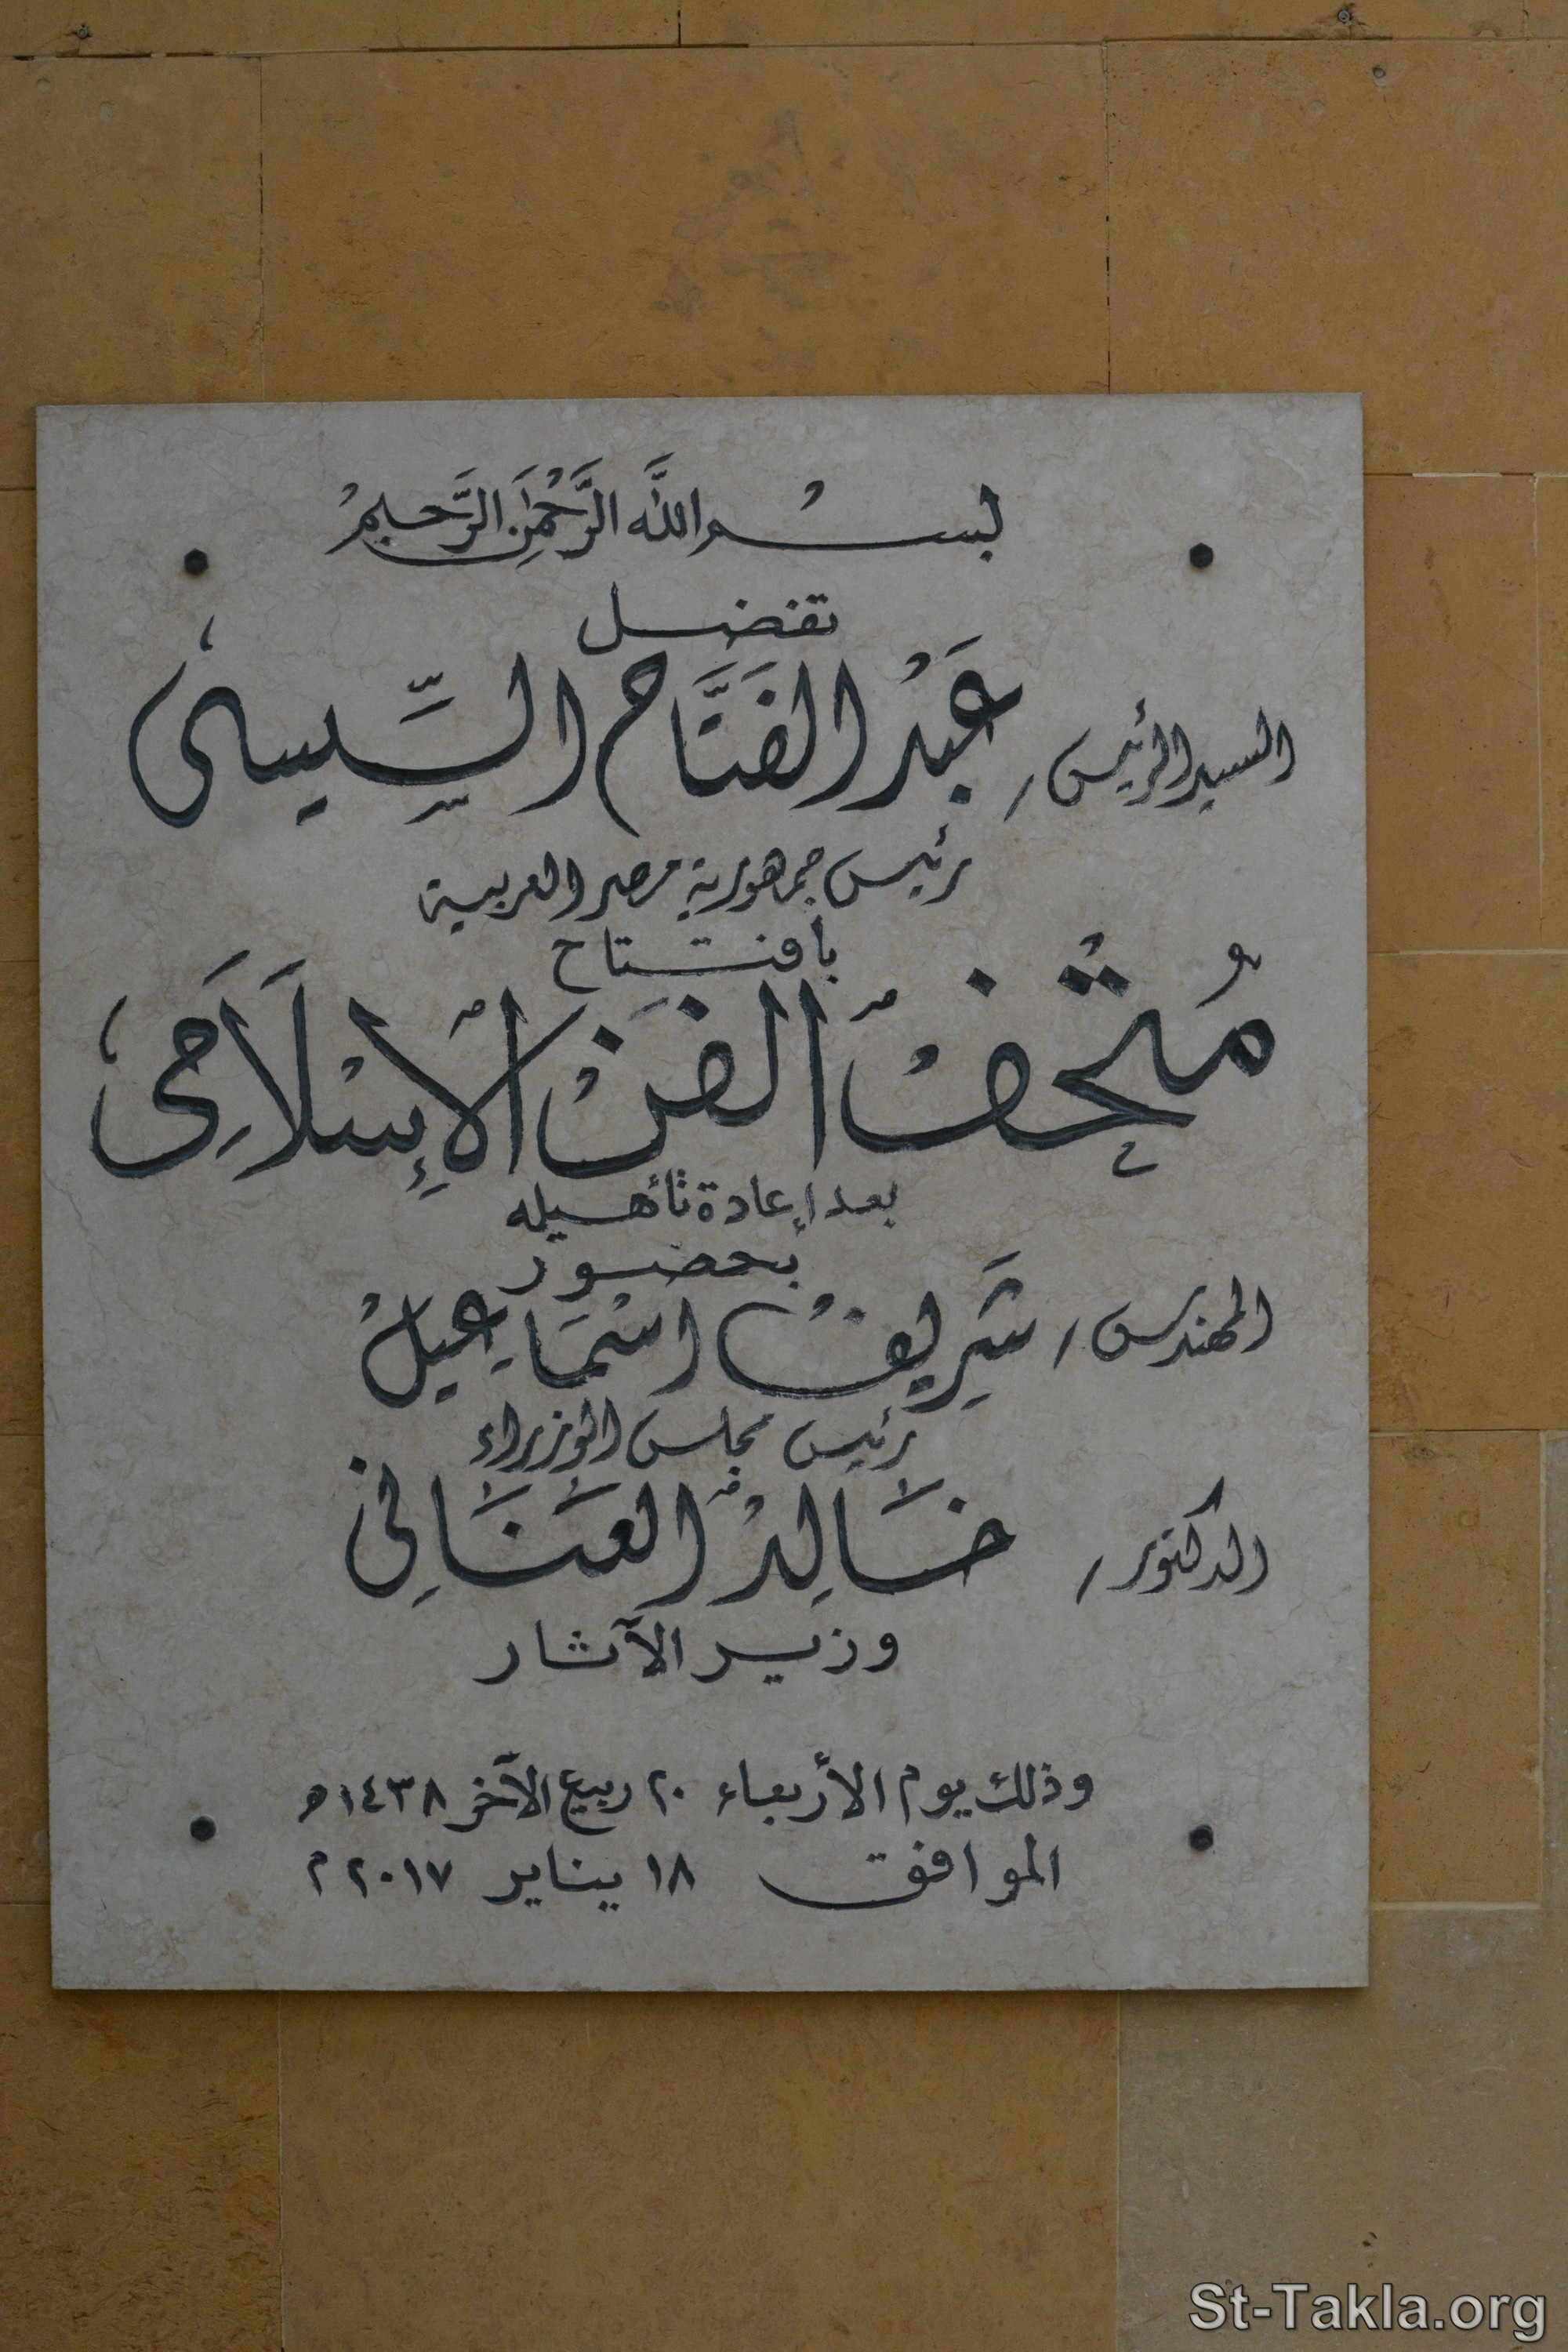 بسم الله الرحمن الرحيم
تفضل
السيد الرئيس / عَبْد الفَتَّاح السِّيسى
رئيس جمهورية مصر العربية
بافتتاح
مُتْحَفْ الفَنْ الإِسْلَامِى
بعد إعادة تأهيله
بحضور
المهندس / شَرِيفْ اسْمَاعِيلْ
رئيس مجلس الوزراء
الدكتور / خَالِدْ العَنَانِى
وزير الآثار
وذلك يوم الأربعاء ٢٠ ربيع الآخر ١٤٣٨هـ
الموافق ١٨ يناير ٢٠١٧ م
St-Takla.org